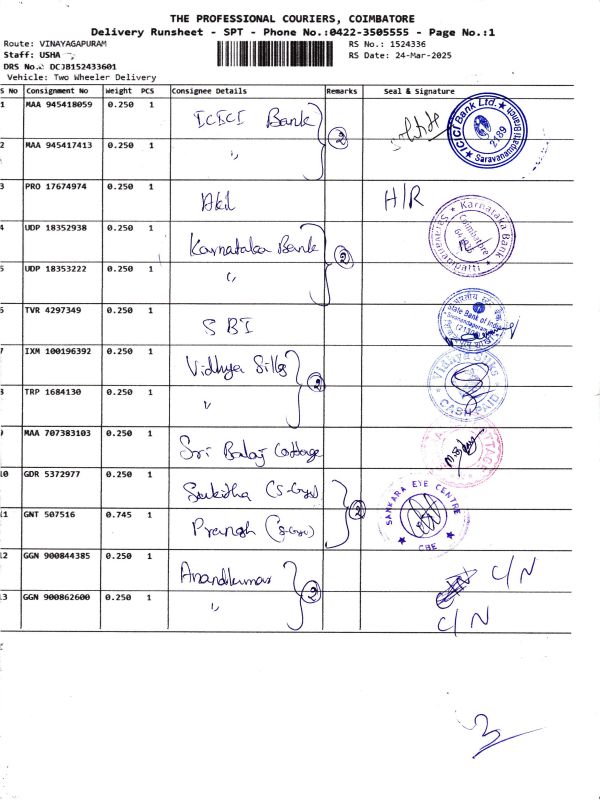 THE PROFESSIONAL COURIERS, COIMBATORE
Delivery Runsheet - SPT - Phone No.:0422-3505555 - Page No.:1
Route: VINAYAGAPURAM RS No.: 1524336
Staff: USHA RS Date: 24-Mar-2025
DRS No.: DCJB152433601
Vehicle: Two Wheeler Delivery
S No Consignment No Weight PCS Consignee Details Remarks Seal & Signature
1 MAA 945418059 0.250 1 ICICI Bank 2 ICICI Bank Ltd. 2189 Saravanampatti Branch
2 MAA 945417413 0.250 1 "
3 PRO 17674974 0.250 1 Akil H/R
4 UDP 18352938 0.250 1 Karnataka Bank 2 Karnataka Bank Coimbatore Saravanampatti
5 UDP 18353222 0.250 1 "
6 TVR 4297349 0.250 1 SBI State Bank of India
7 IXM 100196392 0.250 1 Vidhya Silks 2 CASH PAID
8 TRP 1684130 0.250 1 "
9 MAA 707383103 0.250 1 Sri Balaj Cottage
10 GDR 5372977 0.250 1 2 SANKARA EYE CENTRE CBE
11 GNT 507516 0.745 1
12 GGN 900844385 0.250 1 Anandkumar 2 C/N
13 GGN 900862600 0.250 1 " C/N